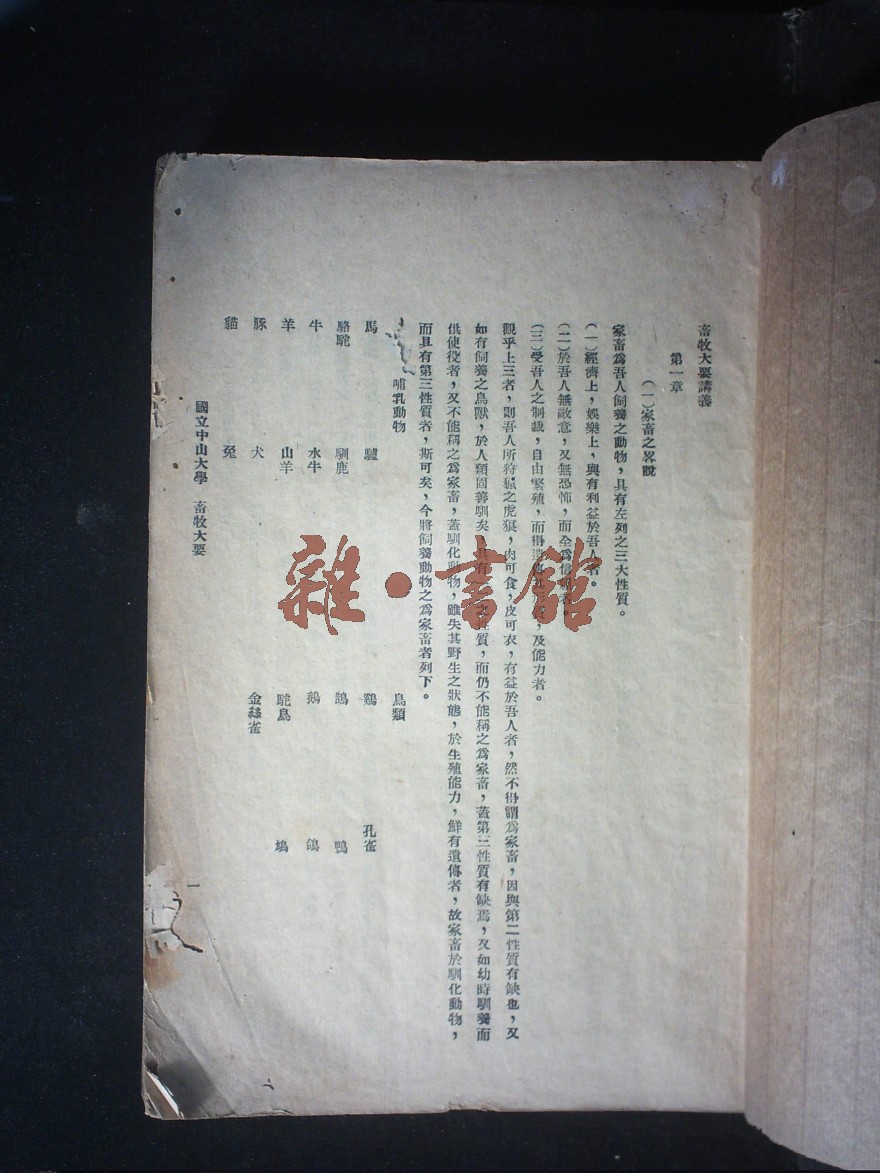 畜牧大要講義
第一章
(一)家畜之畧說
家畜爲吾人飼養之動物，具有左列之三大性質。
(一)經濟上，娛樂上，與有利益於吾人者。
(二)於吾人無敵意，又無恐怖，而全爲信
(三)受吾人之制裁，自由繁殖，而得遺傳其，及能力者。
觀乎上三者，則吾人所狩獵之虎狼，肉可食，皮可衣，有益於吾人者，然不得謂爲家畜，因與第二性質有缺也，又
如有飼養之鳥獸，於人類固善馴矣，具有性質，而仍不能稱之爲家畜，蓋第三性質有缺焉，又如幼時馴養而
供使役者，又不能稱之爲家畜，蓋馴化動物，雖失其野生之狀態，於生殖能力，鮮有遺傳者，故家畜於馴化動物，
而具有第三性質者，斯可矣，今將飼養動物之爲家畜者列下。
哺乳動物 鳥類
馬 驢 鷄 孔雀
駱駝 馴鹿 鵠 鴨
牛 水牛 鵝 鴿
羊 山羊 駝鳥 塢
豚 犬 金絲雀
貓 兔
國立中山大學 畜牧大要
雜·書館